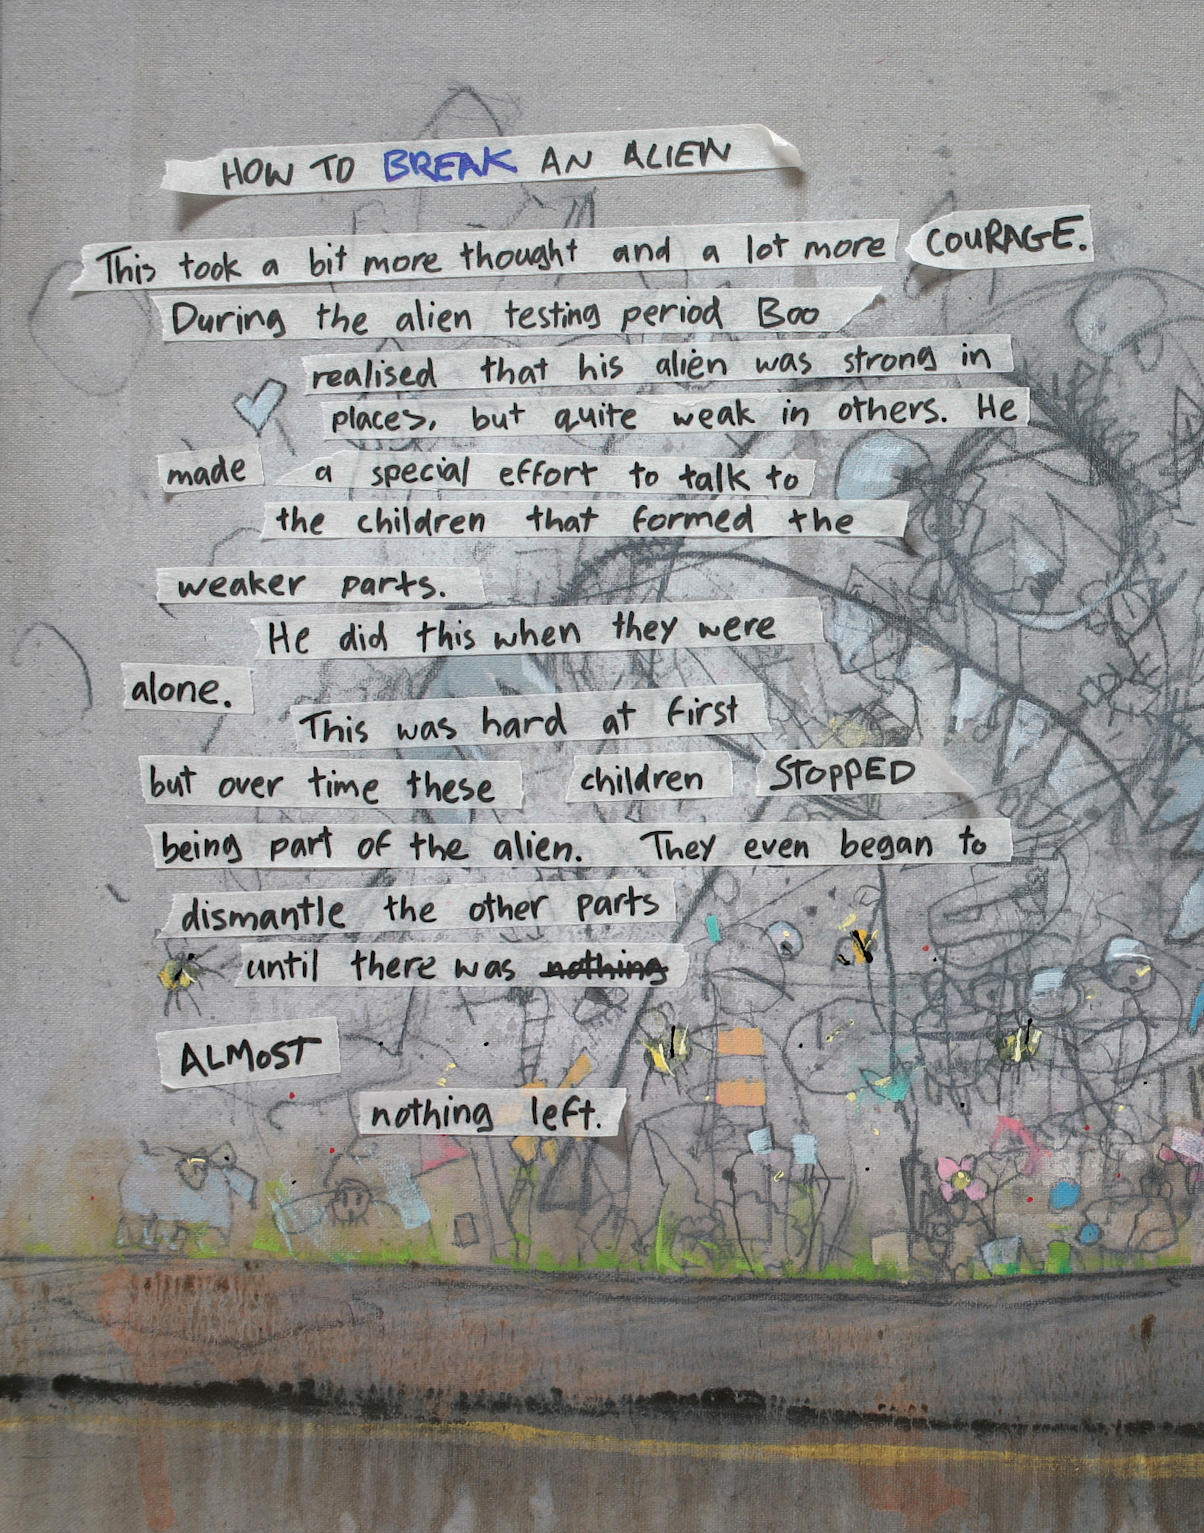 HOW TO BREAK AN ALIEN
This took a bit more thought and a lot more COURAGE.
During the alien testing period Boo
realised that his alien was strong in
places, but quite weak in others. He
made a special effort to talk to
the children that formed the
weaker parts.
He did this when they were
alone.
This was hard at first
but over time these children STOPPED
being part of the alien. They even began to
dismantle the other parts
until there was nothing
ALMOST
nothing left.